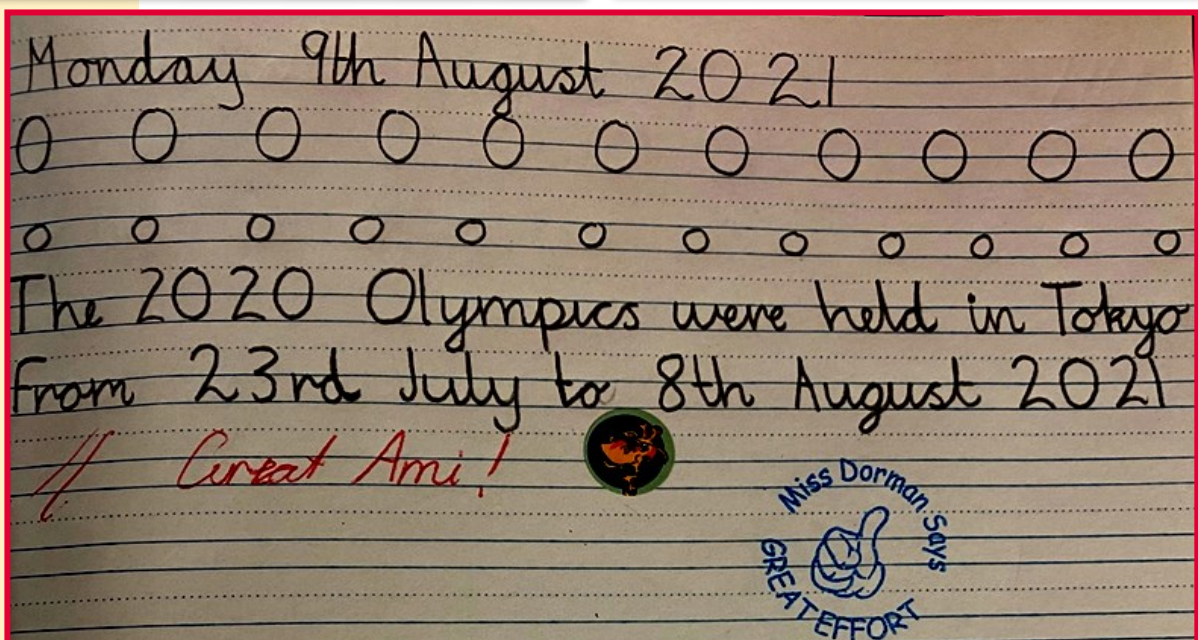 Monday 9th August 2021
O O O O O O O O O O O
o o o o o o o o o o o o
The 2020 Olympics were held in Tokyo
from 23rd July to 8th August 2021
Great Ami!
Miss Dorman Says
GREAT EFFORT